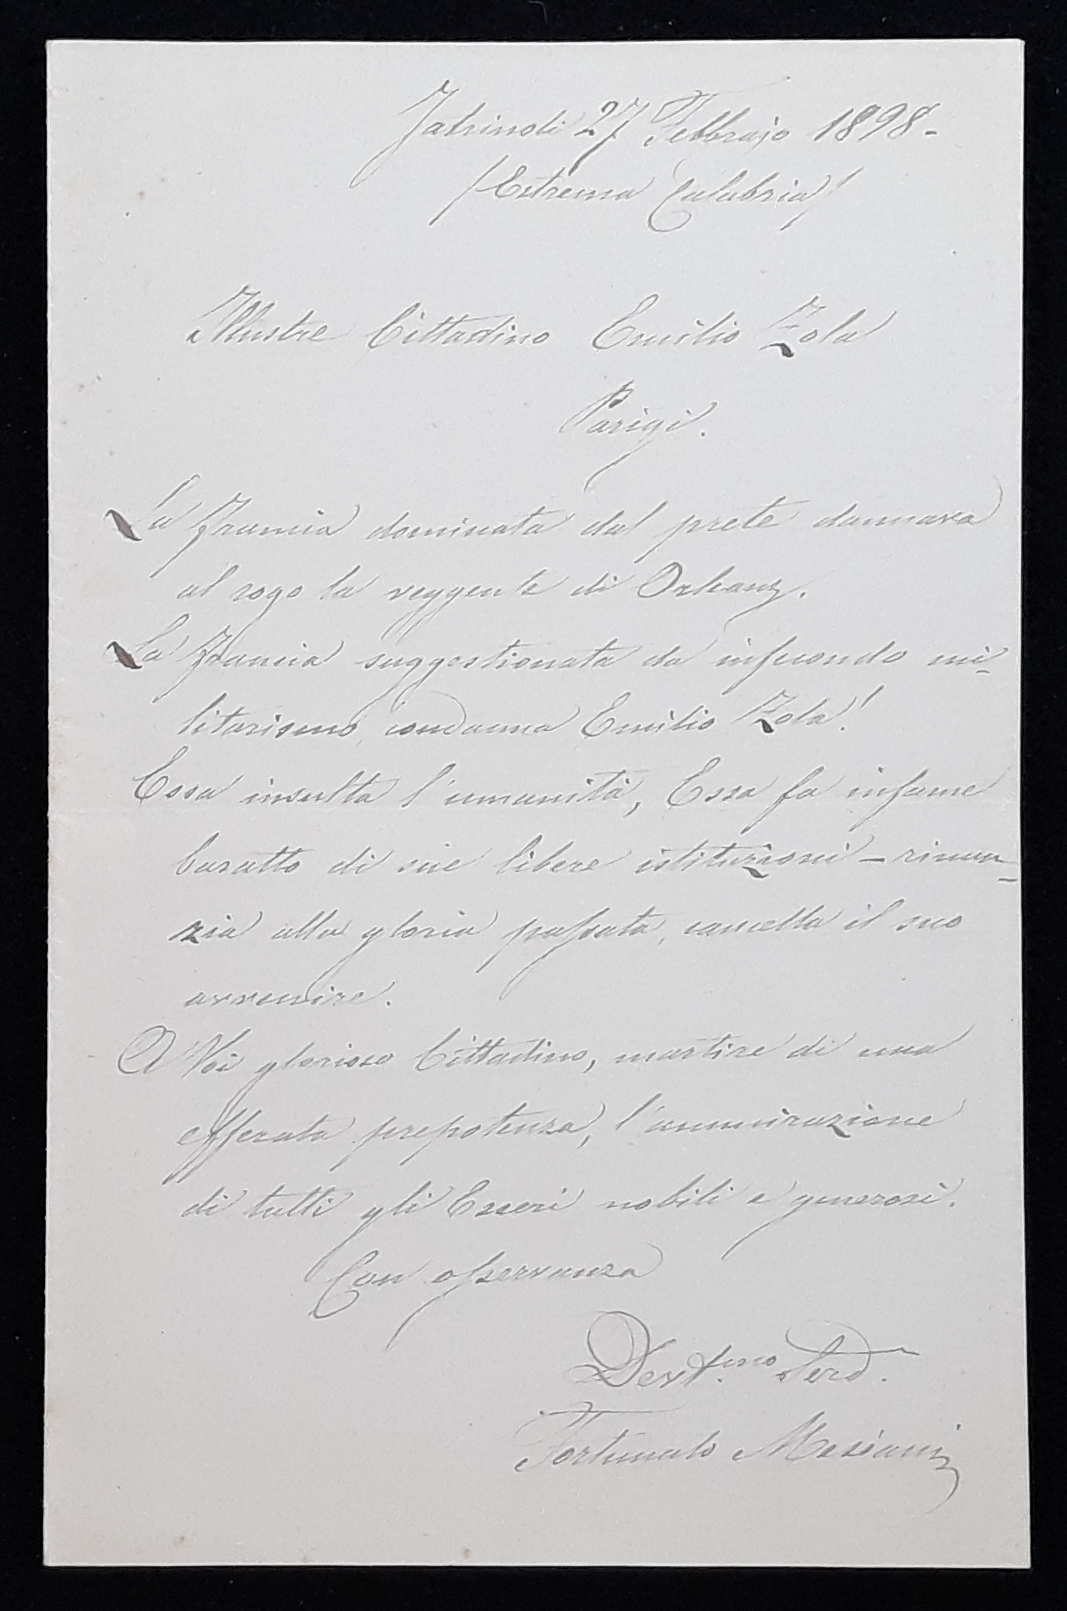 Jatrinoli 27 Febbrajo 1898-
/Estrema Calabria/
Illustre Cittadino Emilio Zola
Parigi.
La Francia dominata dal prete dannava
al rogo la veggente di Orleans.
La Francia suggestionata da infecondo mi-
litarismo, condanna Emilio Zola!
Essa insulta l'umanità, Essa fa infame
baratto di sue libere istituzioni - rinun-
zia alla gloria passata, cancella il suo
avvenire.
A Voi glorioso Cittadino, martire di una
efferata prepotenza, l'ammirazione
di tutti gli Esseri nobili e generosi.
Con osservanza
Devt.mo Serv.
Fortunato Messiani